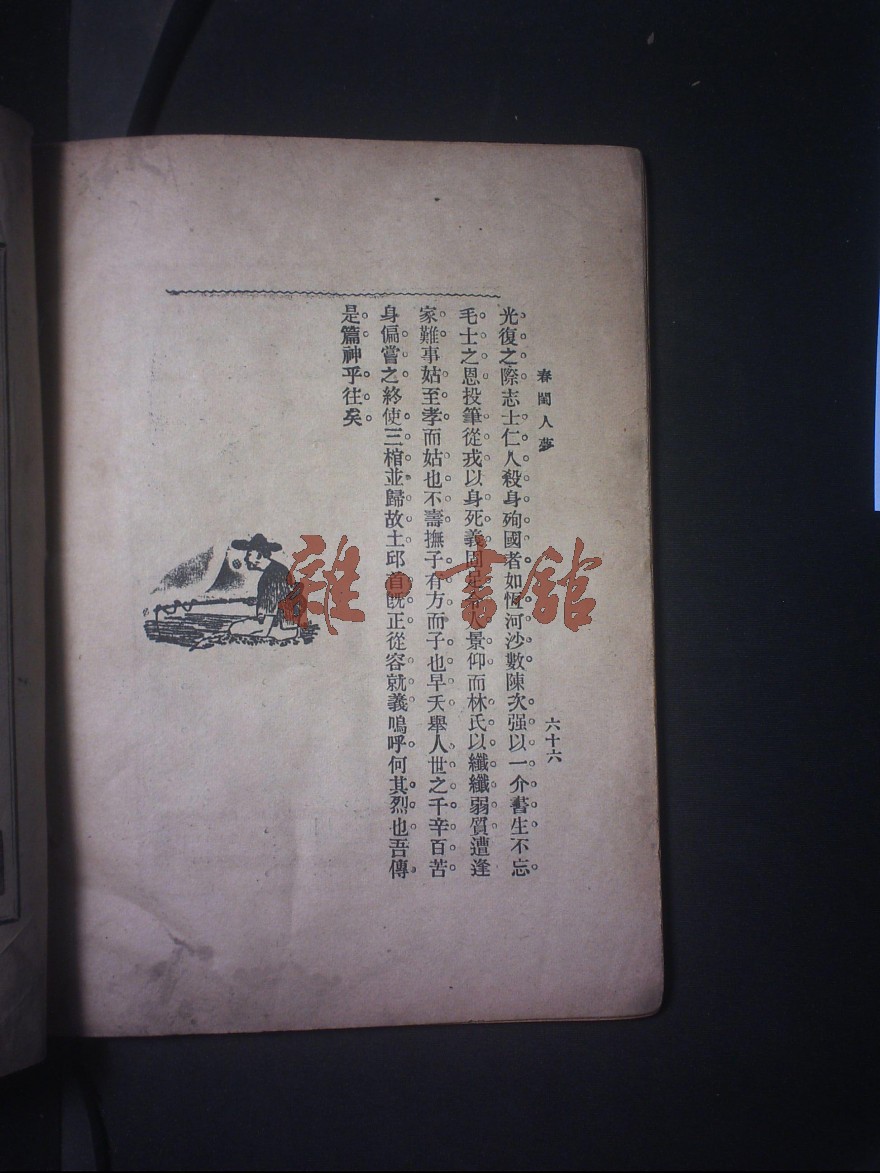 春閨人夢
六十六
光復之際志士仁人殺身殉國者如恆河沙數陳次强以一介書生不忘
毛士之恩投筆從戎以身死義固足令人景仰而林氏以纖纖弱質遭逢
家難事姑至孝而姑也不壽撫子有方而子也早夭舉人世之千辛百苦
身偏嘗之終使三棺並歸故土邱首旣正從容就義嗚呼何其烈也吾傳
是篇神乎往矣
雜·書舘